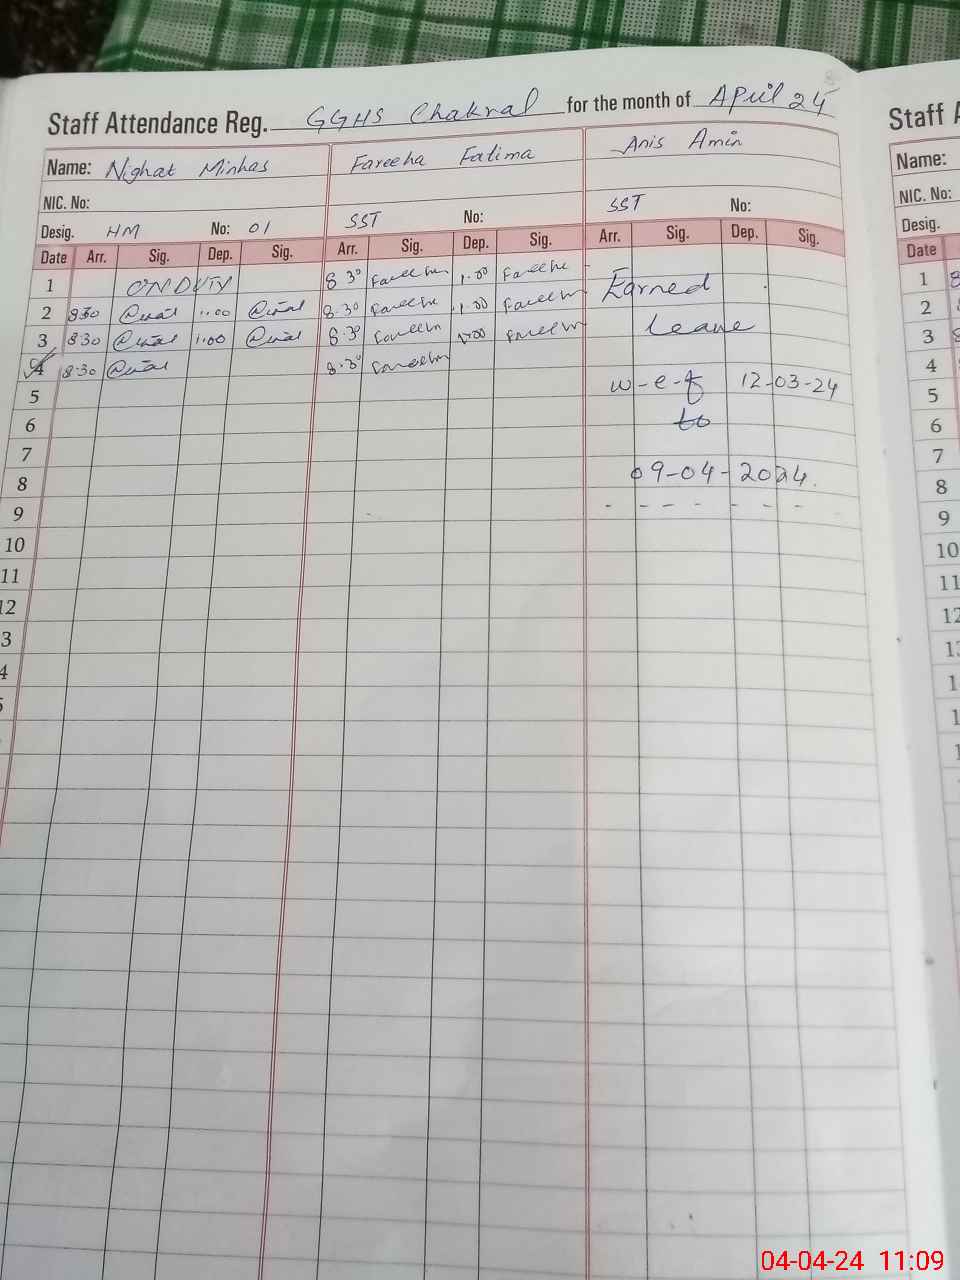 Staff Attendance Reg. GGHS Chakral for the month of April 24
Name: Nighat Minhas Fareeha Fatima Anis Amin
NIC. No:
Desig. HM No: 01 SST No: SST No:
Date Arr. Sig. Dep. Sig. Arr. Sig. Dep. Sig. Arr. Sig. Dep. Sig.
1 ON DUTY 8.30 Fareeha 1.00 Fareeha Earned
2 8:30 1.00 8.30 Fareeha 1.00 Fareeha
3 8:30 1:00 8.30 Fareeha 1.00 Fareeha Leave
4 8:30 8.30 Fareeha
5 w-e-f 12-03-24
6 to
7
8 09-04-2024.
9 - - - - - -
10
11
12
3
4
5
Staff A
Name:
NIC. No:
Desig.
Date
1 8
2
3
4
5
6
7
8
9
10
11
12
04-04-24 11:09